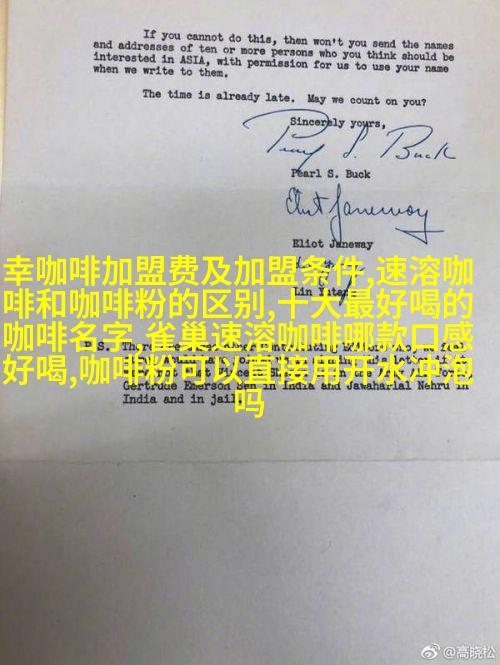 If you cannot do this, then won't you send the names
and addresses of ten or more persons who you think should be
interested in ASIA, with permission for us to use your name
when we write to them.
The time is already late. May we count on you?
Sincerely yours,
Pearl S. Buck
Pearl S. Buck
Eliot Janeway
Eliot Janeway
幸咖啡加盟费及加盟条件,速溶咖
啡和咖啡粉的区别,十大最好喝的
咖啡名字,雀巢速溶咖啡哪款口感
好喝,咖啡粉可以直接用开水冲泡
吗
Lin Yutang
P.S.
Gertrude Emerson Sen in India and Jawaharlal Nehru in
India and in jail.
@高晓松